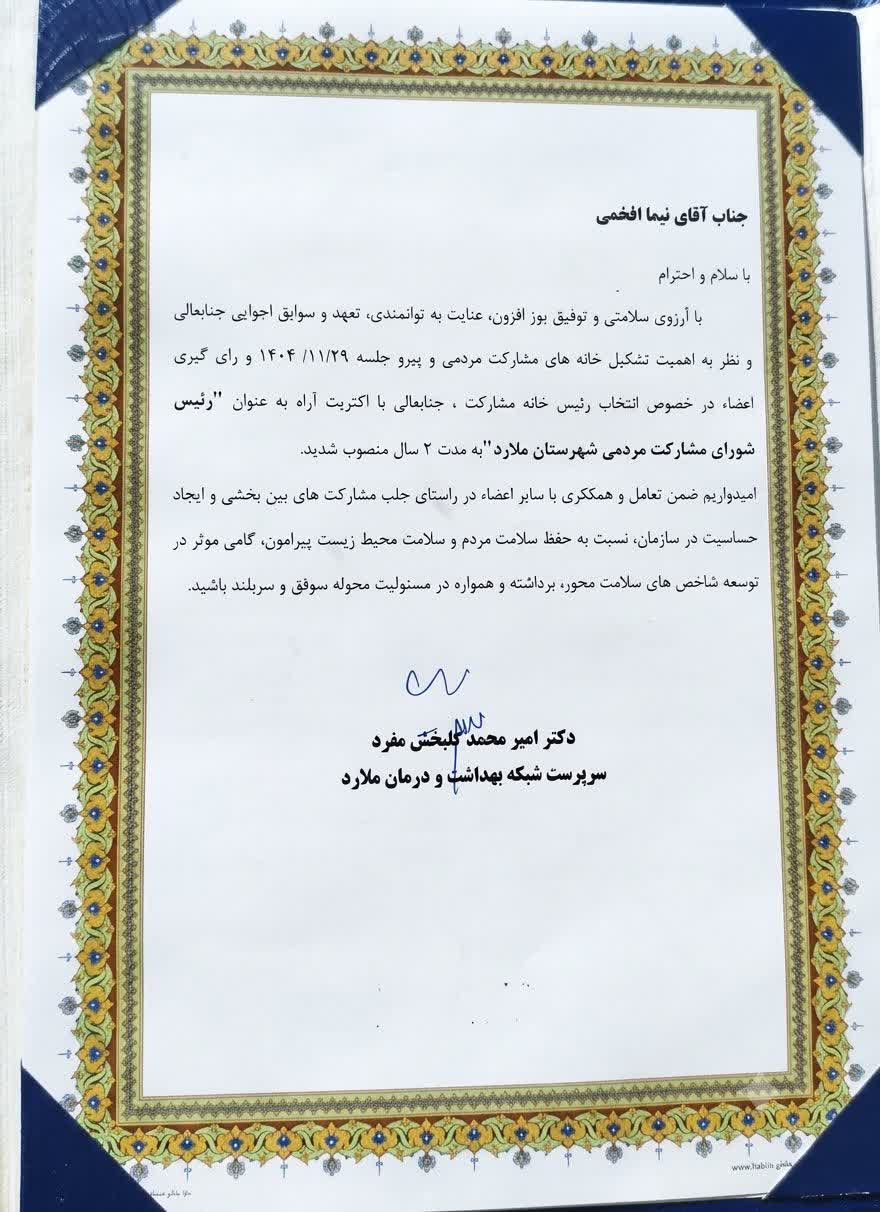 جناب آقای نیما افخمی
با سلام و احترام
با آرزوی سلامتی و توفیق بوز افزون، عنایت به توانمندی، تعهد و سوابق اجوایی جنابعالی
و نظر به اهمیت تشکیل خانه های مشارکت مردمی و پیرو جلسه ۱۴۰۴ /۱۱/۲۹ و رای گیری
اعضاء در خصوص انتخاب رئیس خانه مشارکت ، جنابعالی با اکتریت آراه به عنوان "رئیس
شورای مشارکت مردمی شهرستان ملارد" به مدت ۲ سال منصوب شدید.
امیدواریم ضمن تعامل و همککری با سایر اعضاء در راستای جلب مشارکت های بین بخشی و ایجاد
حساسیت در سازمان، نسبت به حفظ سلامت مردم و سلامت محیط زیست پیرامون، گامی موثر در
توسعه شاخص های سلامت محور، برداشته و همواره در مسنولیت محوله سوفق و سربلند باشید.
دکتر امیر محمد گلبخش مفرد
سرپرست شبکه بهداشت و درمان ملارد